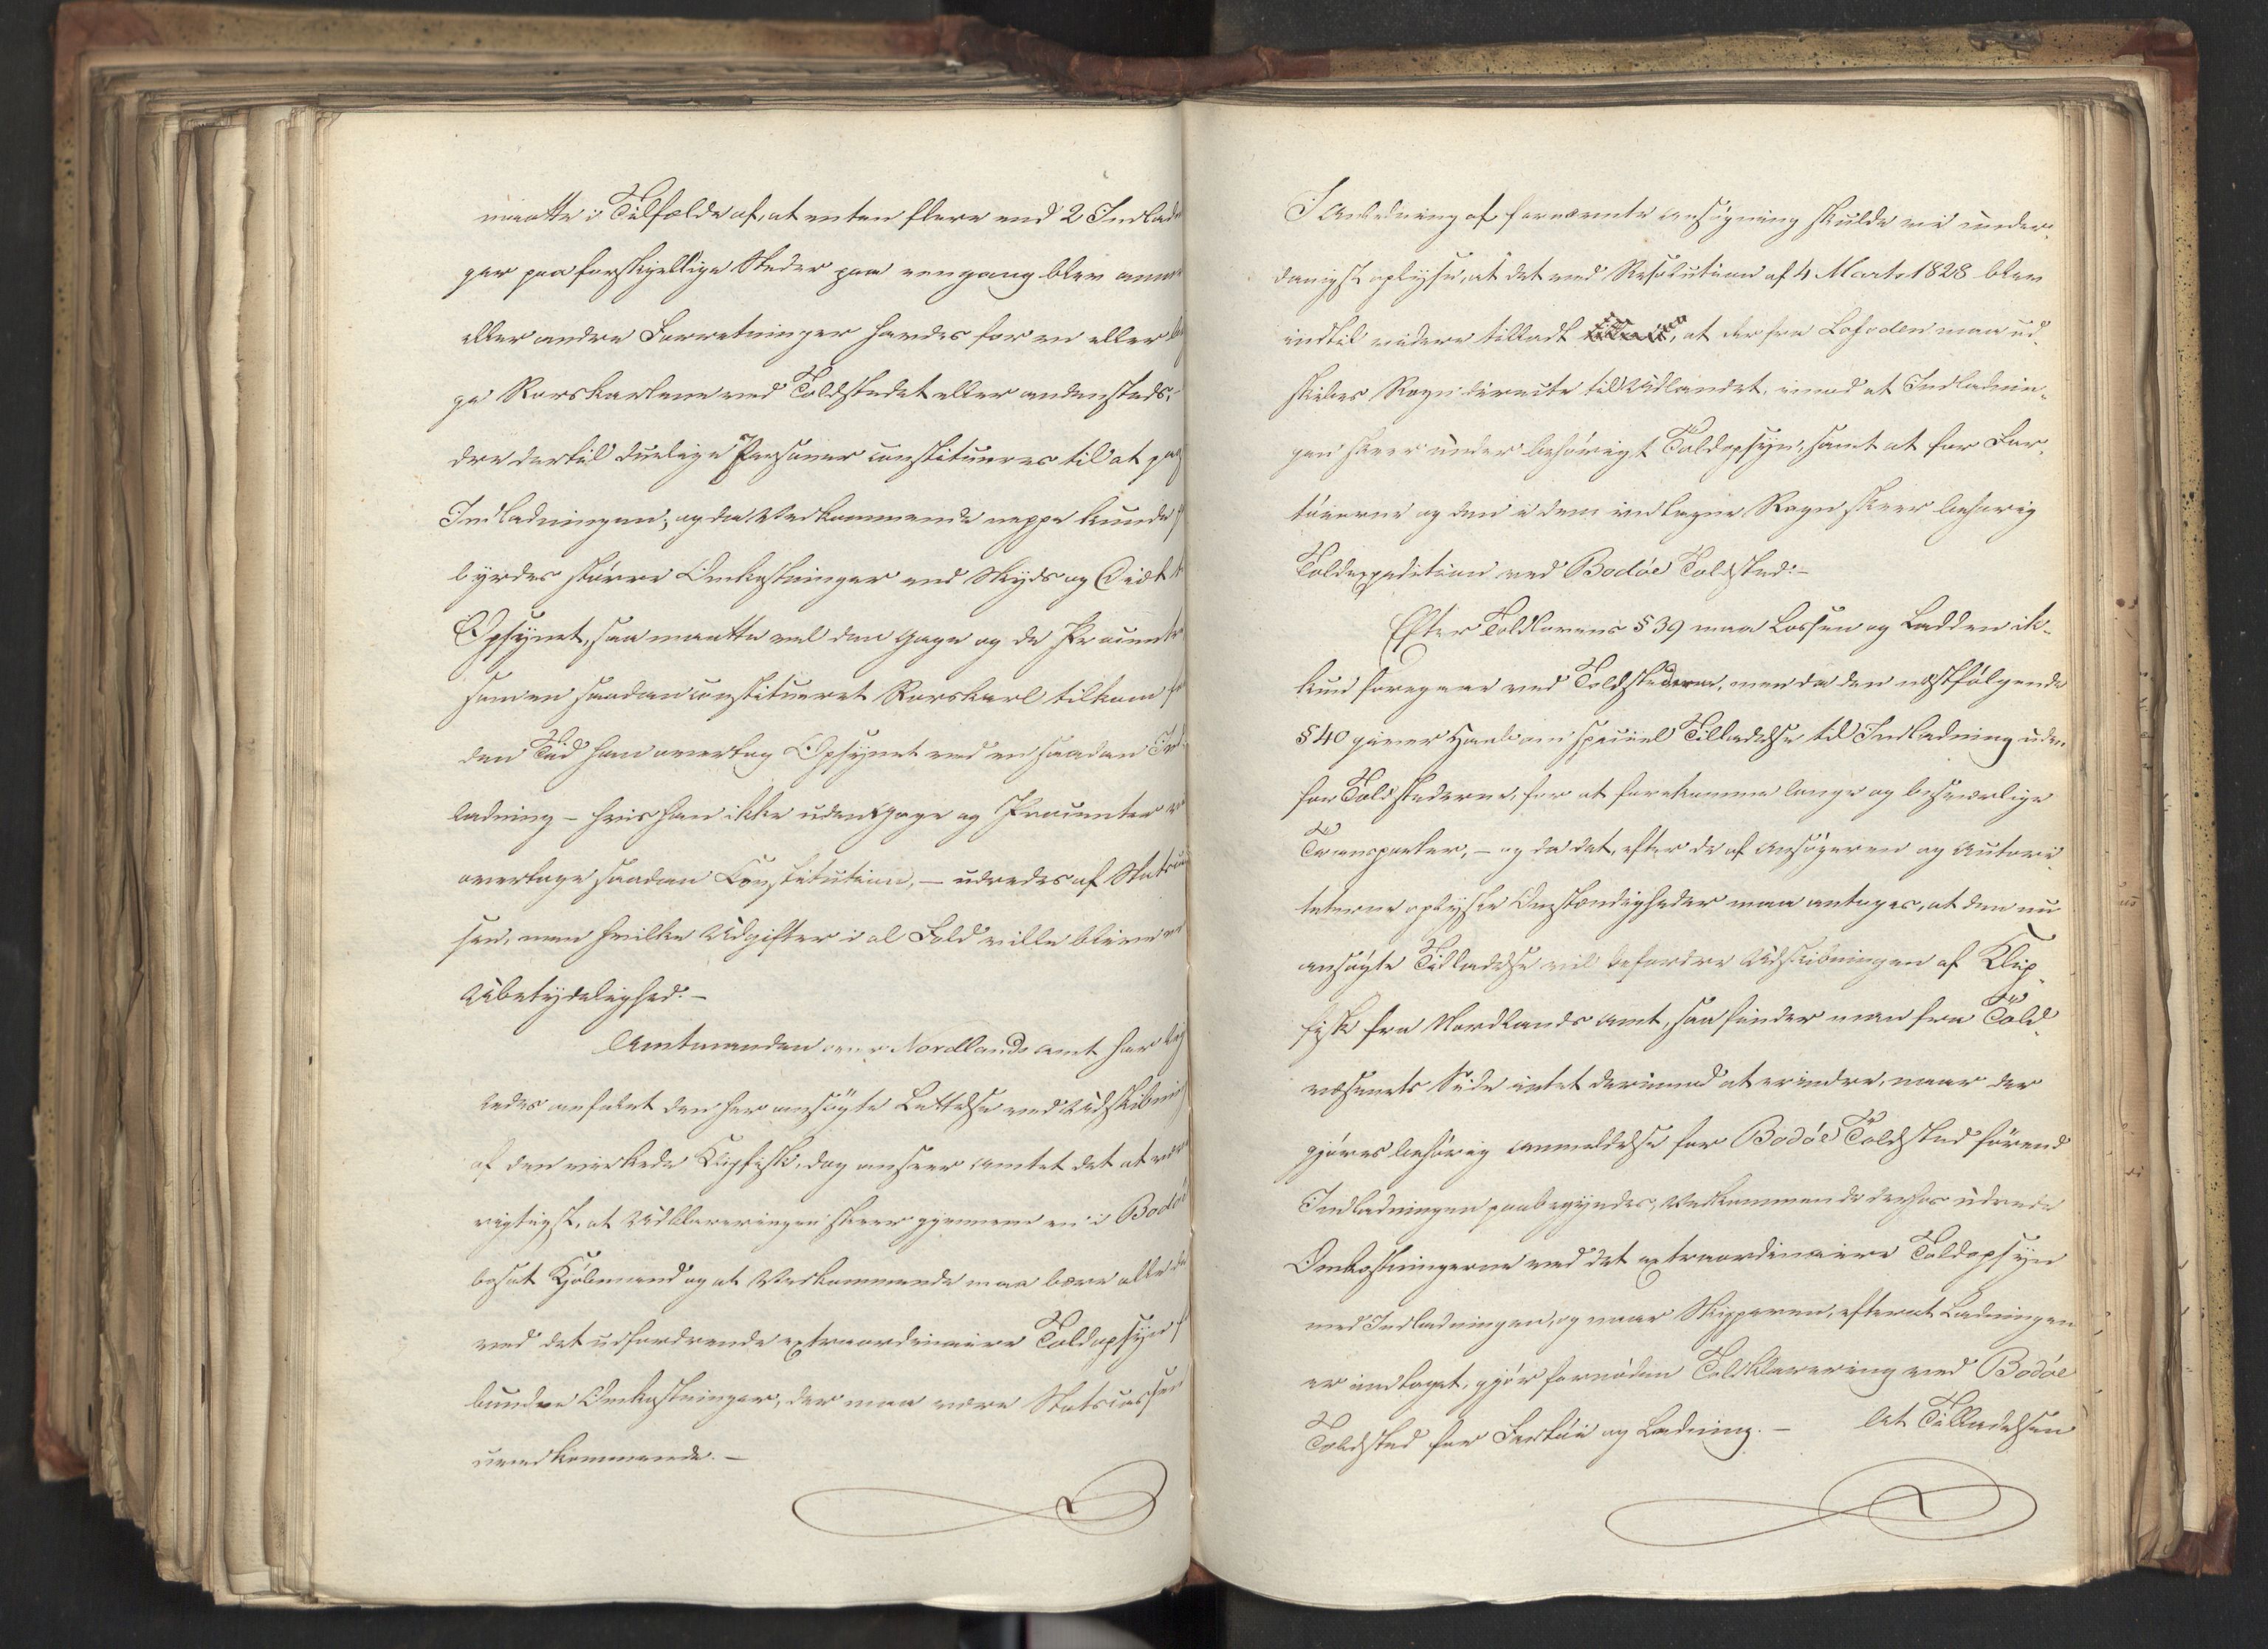 maatte i Tilfælde af, at enten flere end 2 Indlad
ger paa forskjellige Steder paa eengang blev anm
eller andre Forretninger havdes for en eller be
ge Rorskarlene ved Toldstedet eller andensteds,
dre dertil duelige Personer constitueres til at paa
Indladningen, og da Vedkommende neppe kunde
byrdes større Omkostninger end Skyds og Diæt
Opsynet, saa maatte vel den Gage og de Procenter
som en saadan constitueret Rorskarl tilkom for
den Tid han overtog Opsynet ved en saadan Ind
ladning – hvis han ikke uden Gage og Procenter
overtage saadan Constitution, – udredes af Statscas
sen, men hvilke Udgifter i al Fald ville blive
Ubetydelighed. –
Amtmanden over Nordlands Amt har lige
ledes anbefalet den her ansøgte Lettelse ved Udskibning
af den virkede Klipfisk, dog anseer Amtet det at være
rigtigst, at Udklareringen skeer gjennem en i Bodøe
bosat Kjøbmand og at Vedkommende maa bære alle de
ved det udfordrende extraordinaire Toldopsyn for
bundne Omkostninger, der maa være Statscassen
uvedkommende. –
I Anledning af fornævnte Ansøgning skulde vi under-
danigst oplyse, at det ved Resolution af 4 Marts 1828 blev
indtil videre tilladt, at der fra Lofoden maa ud-
skibes Rogn directe til Udlandet, imod at Indladnin-
gen skeer under behørigt Toldopsyn, samt at for Far-
tøierne og den i dem indtagne Rogn skeer behørig
Toldexpedition ved Bodøe Toldsted. –
Efter Toldlovens § 39 maa Lossen og Ladden ik-
kun foregaae ved Toldstederne, men da den næstfølgende
§ 40 giver Haab om speciel Tilladelse til Indladning uden-
for Toldstederne, for at forekomme lange og besværlige
Transporter, – og da det, efter de af Ansøgeren og Autori-
teterne oplyste Omstændigheder maa antages, at den nu
ansøgte Tilladelse vil befordre Udskibningen af Klip-
fisk fra Nordlands Amt, saa finder man fra Told-
væsenets Side intet derimod at erindre, naar der
gjøres behørig Anmeldelse for Bodøe Toldsted førend
Indladningen paabegyndes, Vedkommende derhos udrede
Omkostningerne ved det extraordinaire Toldopsyn
med Indladningen, og naar Skipperen, efterat Ladningen
er indtaget, gjør fornøden Toldklarering ved Bodøe
Toldsted for Fartøi og Ladning. – At Tilladelsen